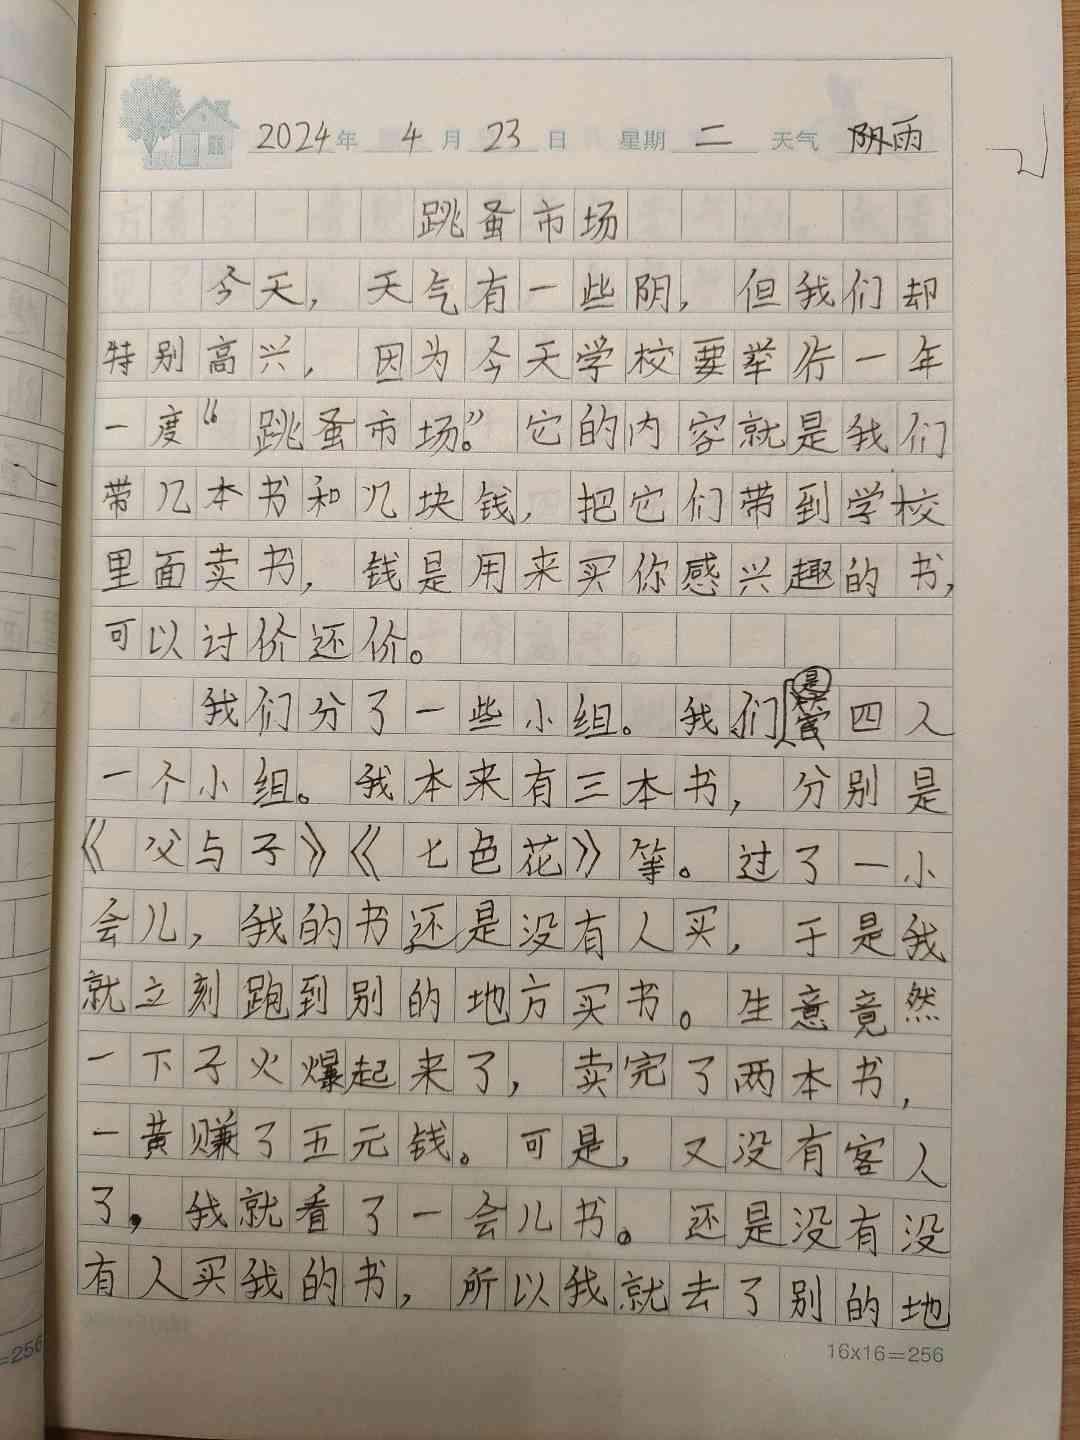 2024年 4月 23日 星期 二 天气 阴雨
跳蚤市场
今天，天气有一些阴，但我们却
特别高兴，因为今天学校要举行一年
一度“跳蚤市场。”它的内容就是我们
带几本书和几块钱，把它们带到学校
里面卖书，钱是用来买你感兴趣的书，
可以讨价还价。
我们分了一些小组。我们是四人
一个小组。我本来有三本书，分别是
《父与子》《七色花》等。过了一小
会儿，我的书还是没有人买，于是我
就立刻跑到别的地方买书。生意竟然
一下子火爆起来了，卖完了两本书，
一黄赚了五元钱。可是，又没有客人
了，我就看了一会儿书。还是没有没
有人买我的书，所以我就去了别的地
16x16=256
=256